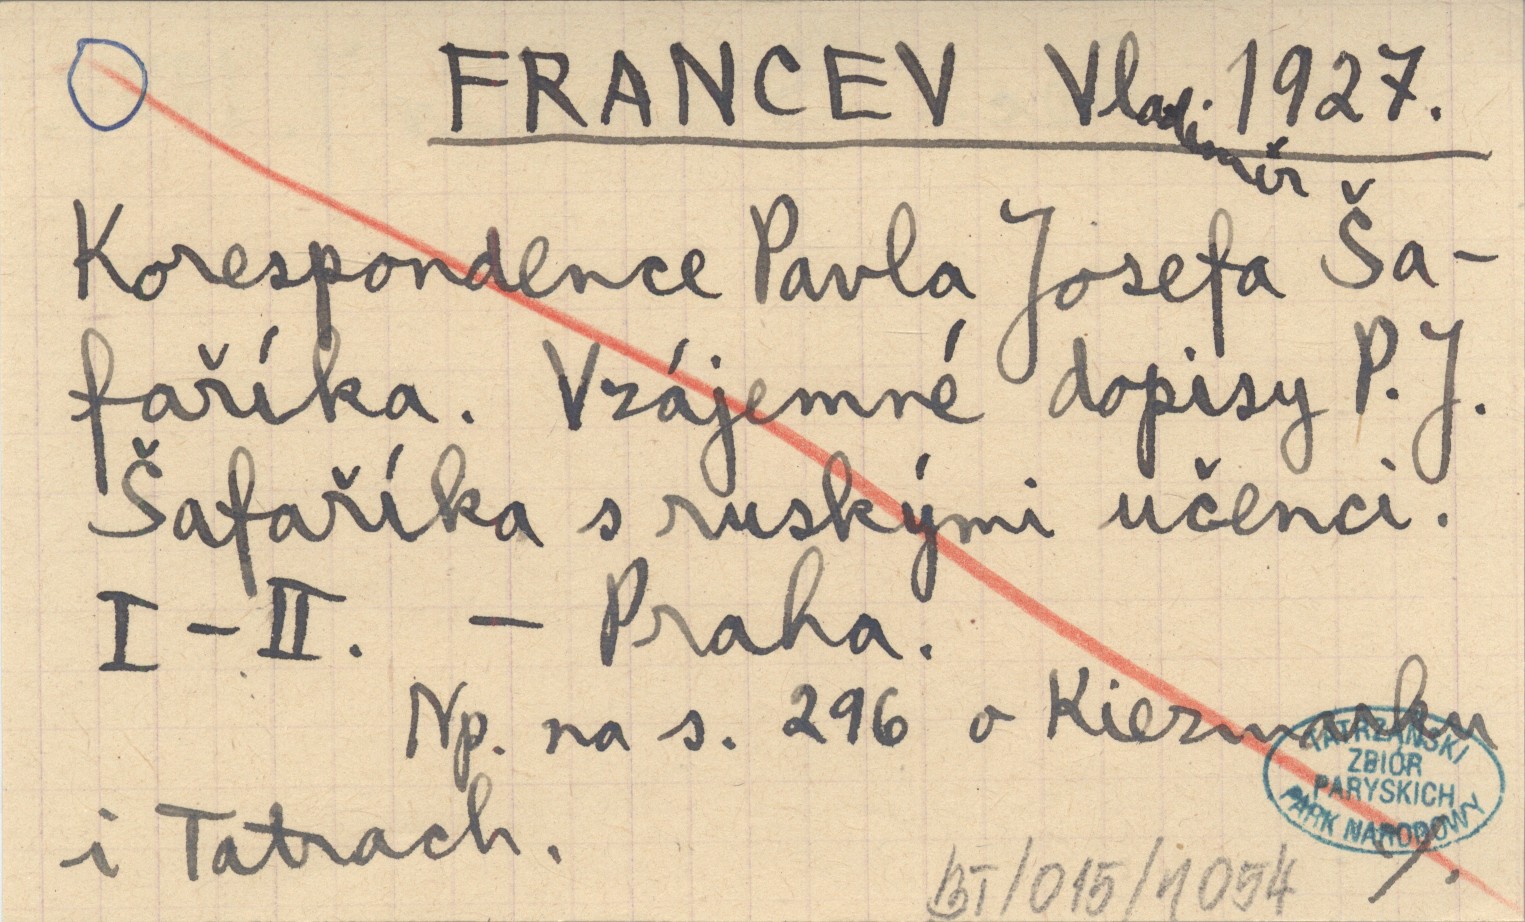 FRANCEV Vladimír 1927.
Korespondence Pavla Josefa Ša-
faříka. Vzájemné dopisy P. J.
Šafaříka s ruskými učenci.
I - II. - Praha.
Np. na s. 296 o Kiezmarku
i Tatrach.
TATRZAŃSKI
ZBIÓR
PARYSKICH
PARK NARODOWY
BT/015/1054